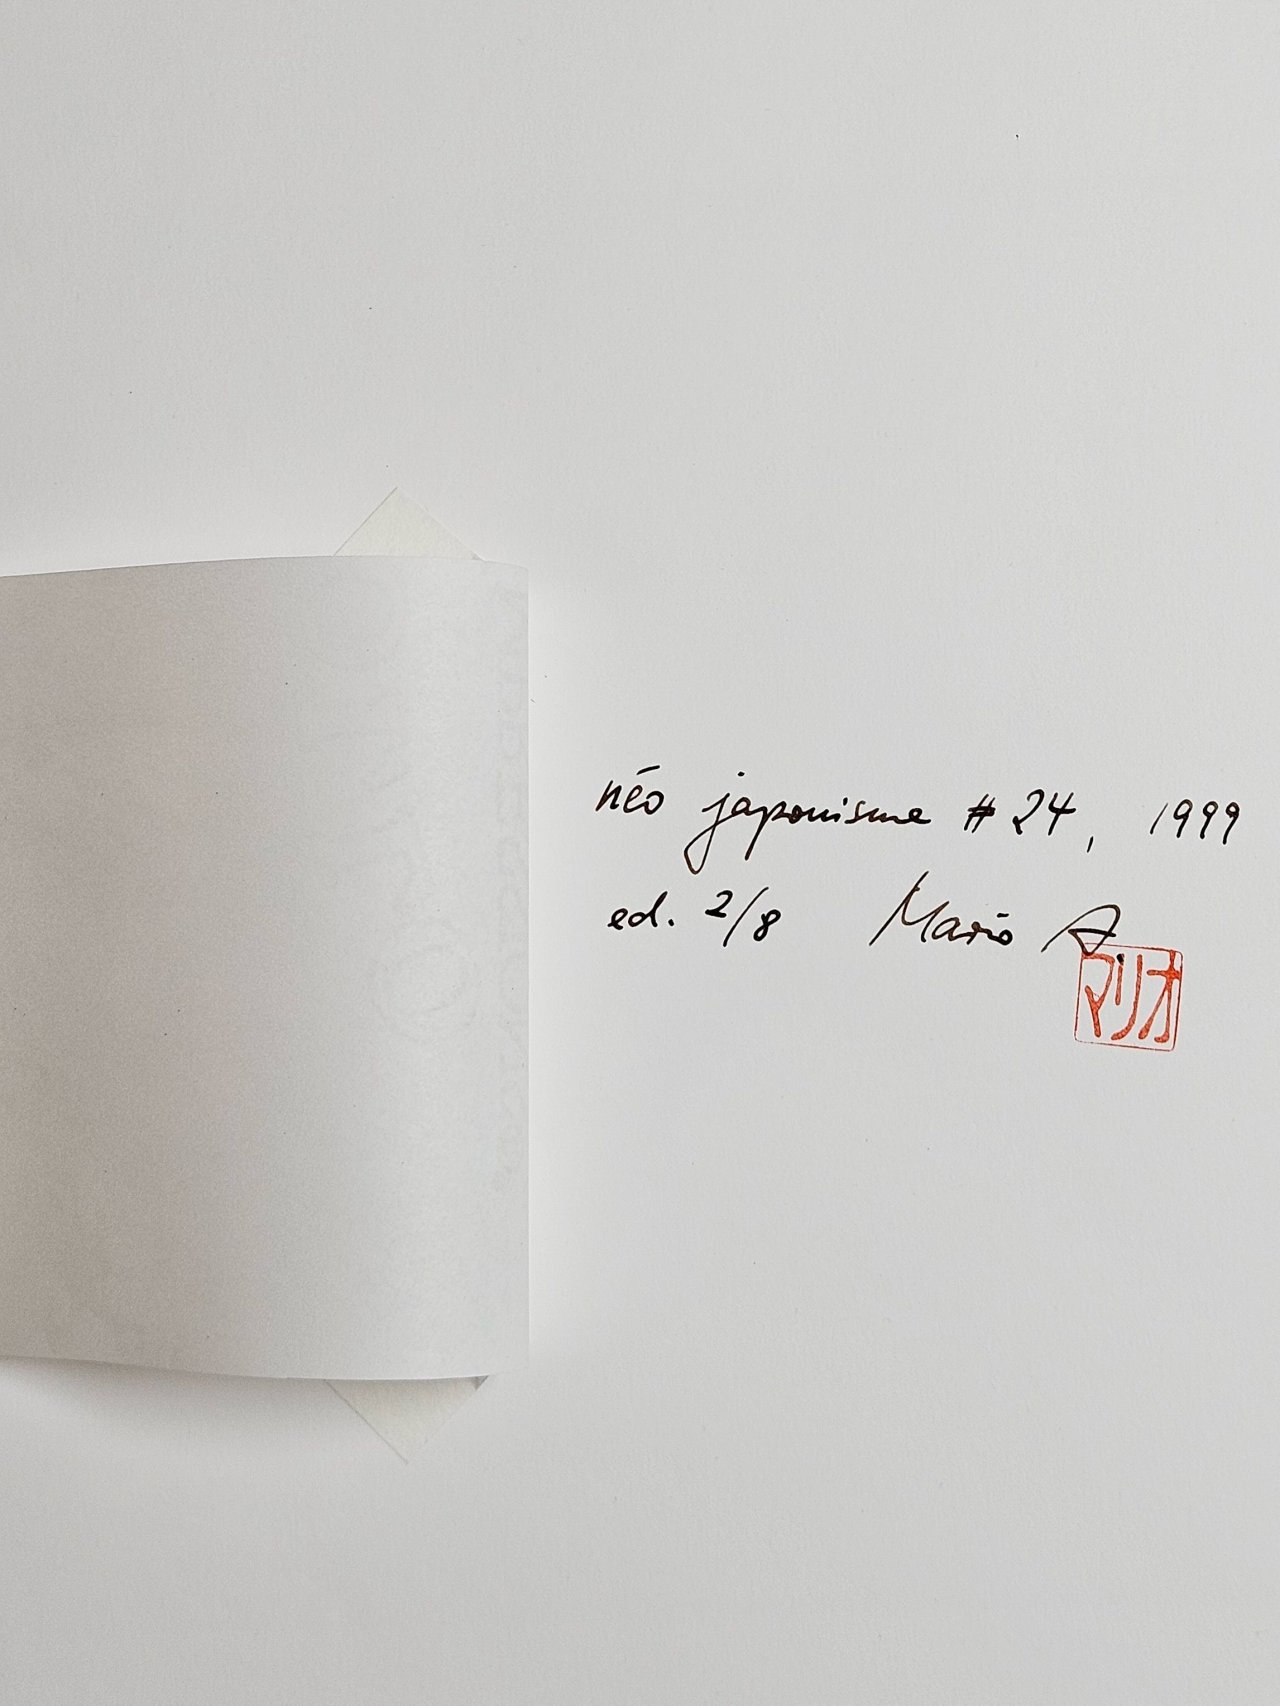 néo japonisme #24, 1999
ed. 2/8 Mario A.
マリオ